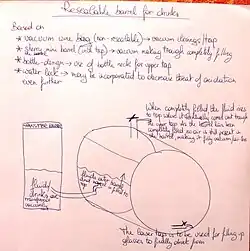 Resealable barrel for drinks
Based on
* vacuum wine bag (non-resealable) → vacuum closings/tap
* stereo mini barrel (with tap) → vacuum making trough completely filling
* bottle-design → use of bottle neck for upper tap
* water lock → may be incorporated to decrease threat of oxidation
even further
When completely filled the fluid rises
to top valve & eventually comes out through
the upper tap. As the barrel has been
completely filled no air is still present in
the barrel, making it fully vacuum
fluid/
drinks
vacuum
The lower tap is to be used for filling up
glasses to finally drink from